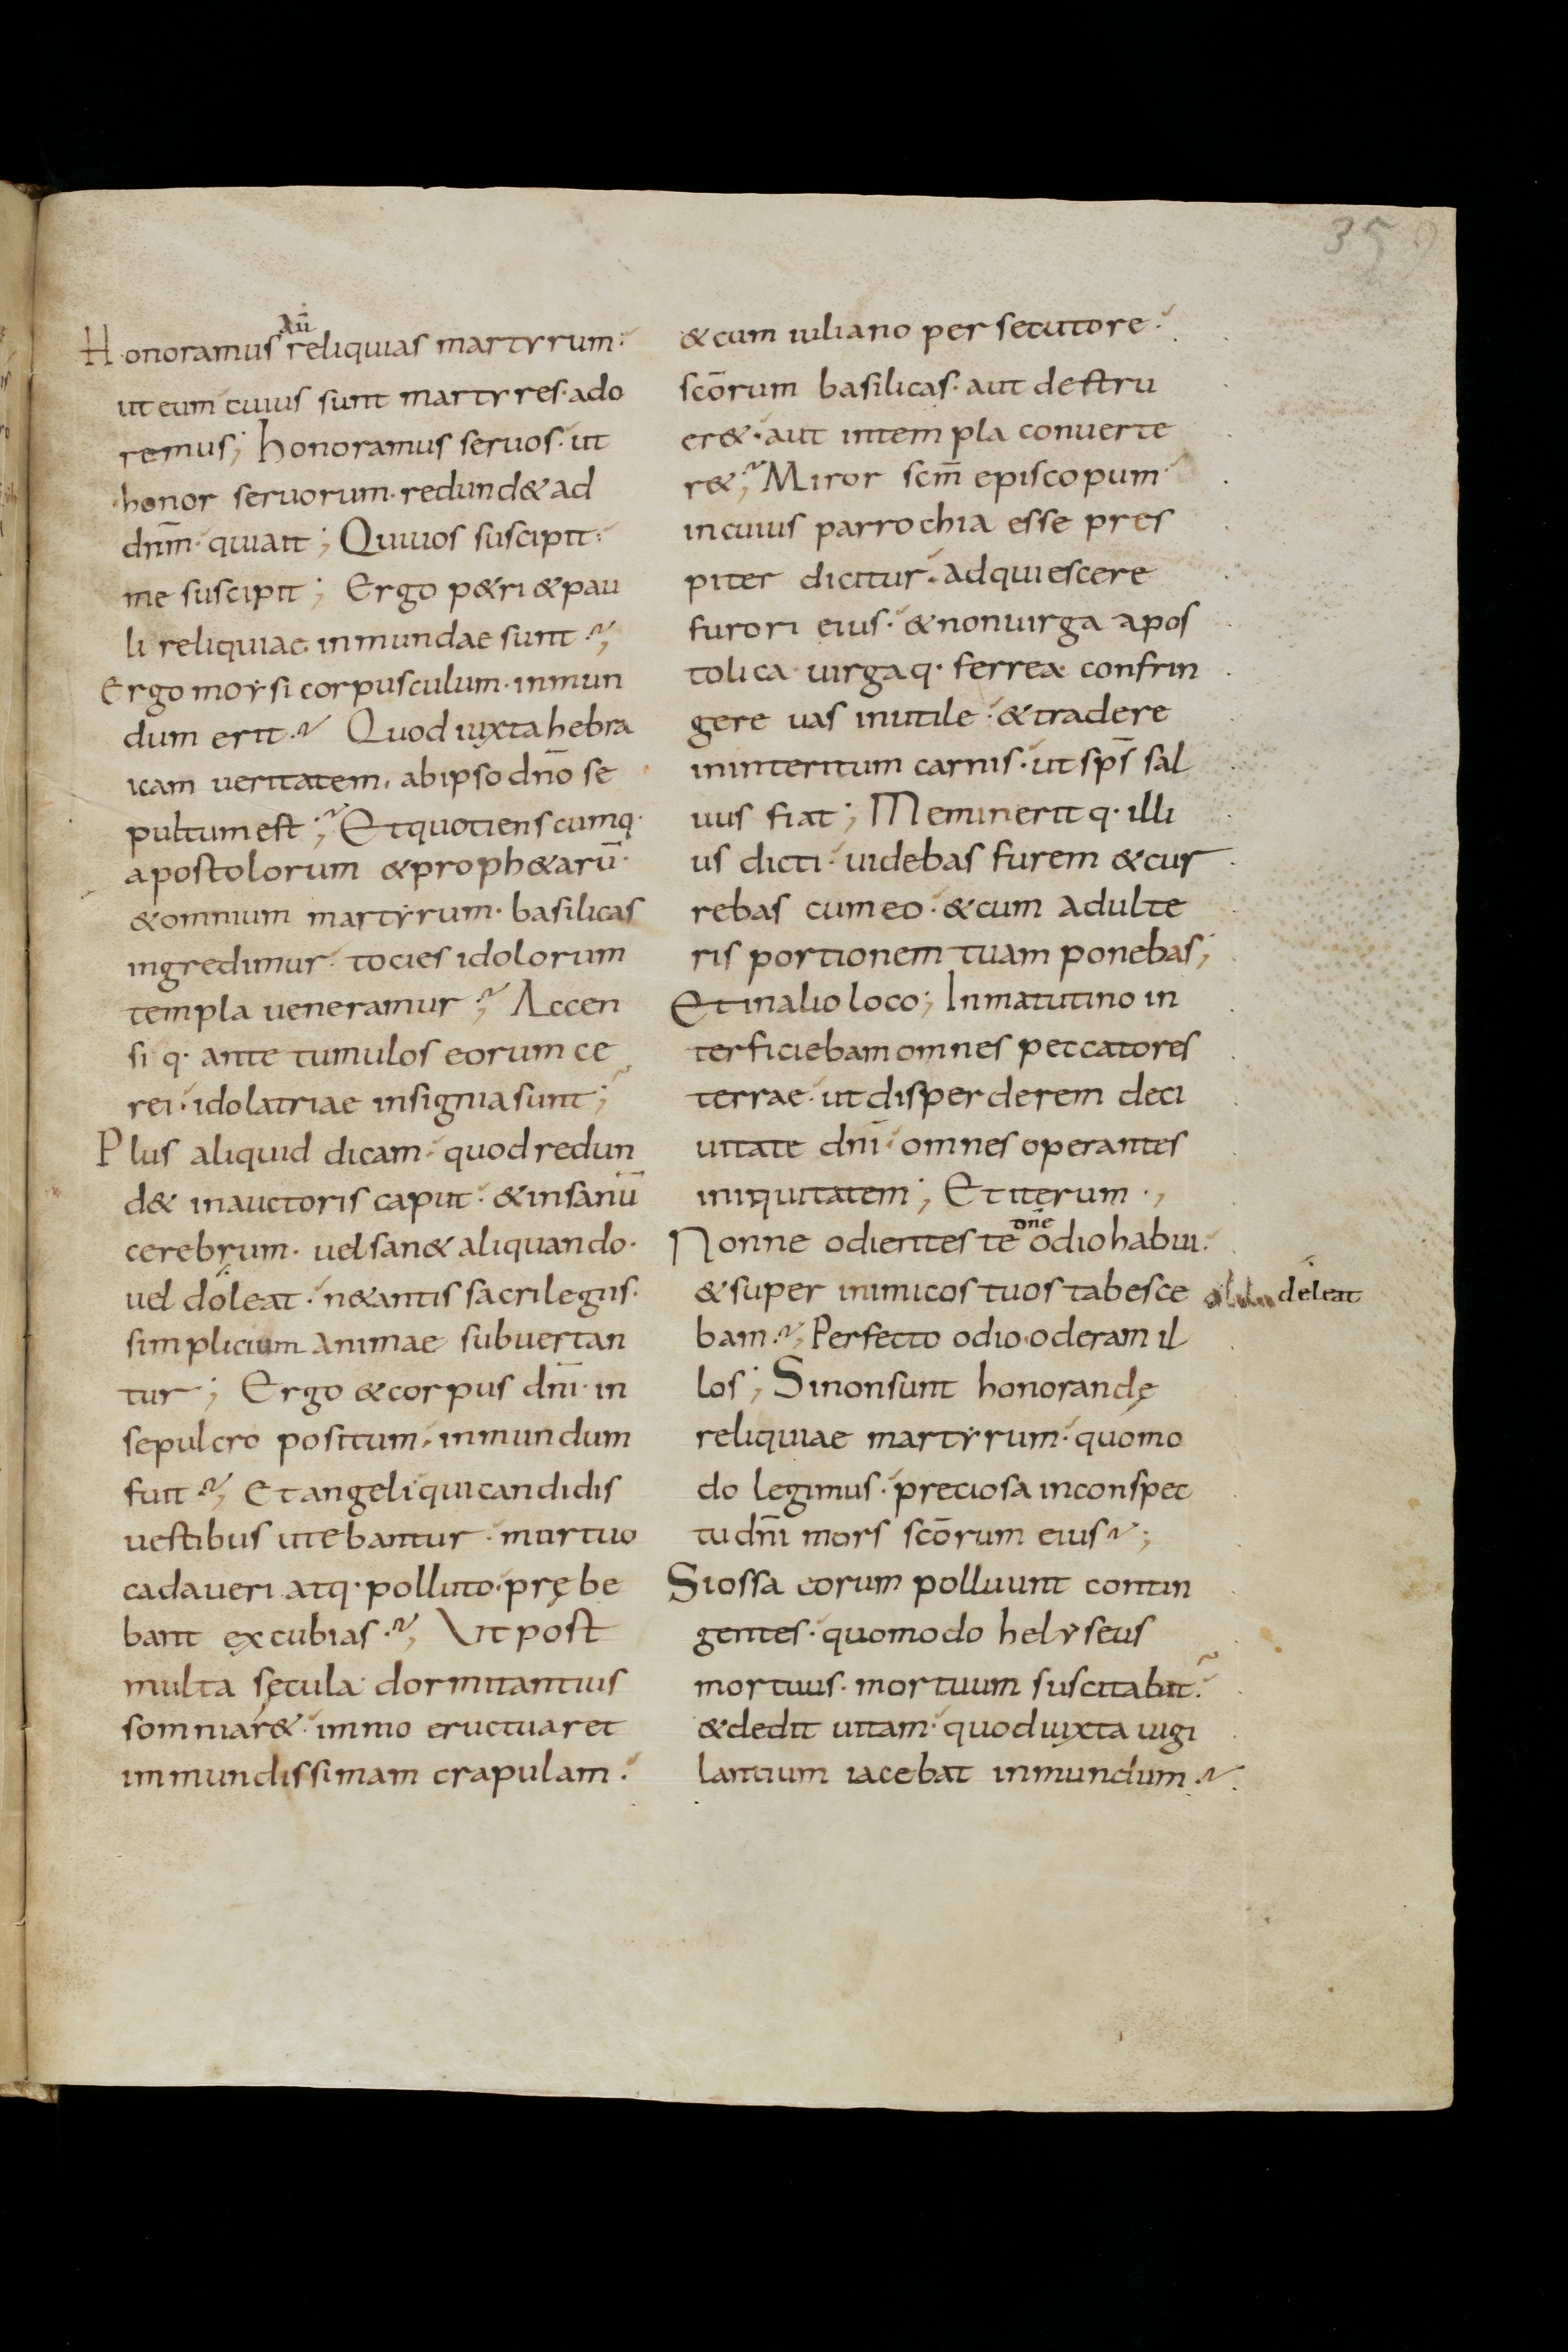 359
aū
Honoramus reliquias martyrum·
ut eum cuius sunt martyres· ado
remus; honoramus seruos· ut
honor seruorum· redund& ad
dnm̄· qui ait; Qui uos suscipit·
me suscipit; Ergo p&ri & pau
li reliquiae inmundae sunt?;
Ergo moysi corpusculum· inmun
dum erit? Quod iuxta hebra
icam ueritatem, ab ipso dn̄o se
pultum est?; Et quotienscumq·
apostolorum & proph&arū·
& omnium martyrum· basilicas
ingredimur· tocies idolorum
templa ueneramur?; Accen
siq· ante tumulos eorum ce
rei· idolatriae insignia sunt?;
Plus aliquid dicam· quod redun
d& in auctoris caput· & insanū
cerebrum· uel san& aliquando·
uel doleat· ne tantis sacrilegiis·
simplicium animae subuertan
tur; Ergo & corpus dn̄i· in
sepulcro positum, inmundum
fuit?; Et angeli qui candidis
uestibus utebantur· mortuo
cadaueri atq· polluto· prębe
bant excubias?; Ut post
multa sęcula dormitantius
somniar&· immo eructuaret
immundissimam crapulam·
& cum iuliano persecutore·
scōrum basilicas· aut destru
er&· aut in templa conuerte
r&?; Miror scm̄ episcopum
in cuius parrochia esse pres
piter dicitur· adquiescere
furori eius· & non uirga apos
tolica uirgaq· ferrea confrin
gere uas inutile· & tradere
in interitum carnis· ut sps̄ sal
uus fiat; Memineritq· illi
us dicti· uidebas furem & cur
rebas cum eo· & cum adulte
ris portionem tuam ponebas;
Et in alio loco; In matutino in
terficiebam omnes peccatores
terrae· ut disperderem de ci
uitate dn̄i· omnes operantes
iniquitatem; Et iterum·,
dn̄e
Nonne odientes te odio habui·
& super inimicos tuos tabesce
deleat
bam?; Perfecto odio oderam il
los; Si non sunt honorandę
reliquiae martyrum· quomo
do legimus· preciosa in conspec
tu dn̄i mors scōrum eius?;
Si ossa eorum polluunt contin
gentes· quomodo helyseus
mortuus· mortuum suscitabit?
& dedit uitam· quod iuxta uigi
lantium iacebat inmundum?